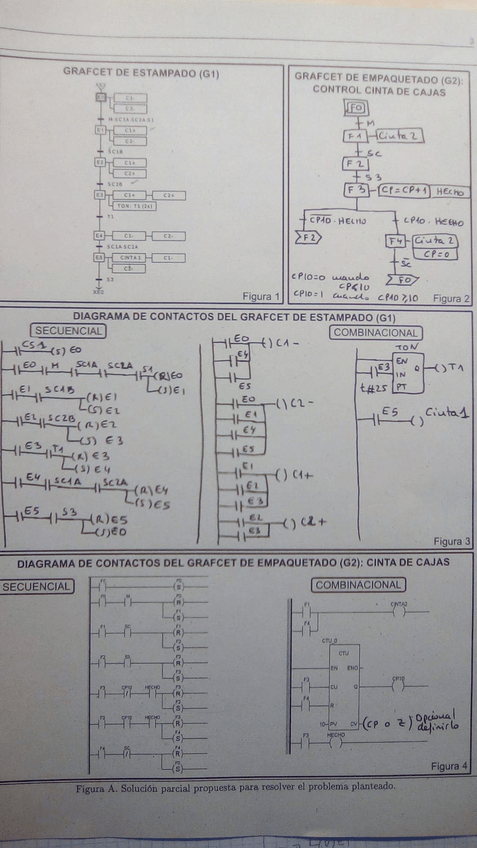 GRAFCET DE ESTAMPADO (G1)
C1-
C2-
M·SC1A·SC2A·S1
E1
C1+
C2-
SC1B
E2
C1+
C2+
SC2B
E3
C1+
C2+
TON: T1 (2s)
T1
E4
C1-
C2-
SC1A·SC2A
E5
CINTA 1
C1-
C2-
S3
Figura 1
GRAFCET DE EMPAQUETADO (G2):
CONTROL CINTA DE CAJAS
F0
M
F1
Cinta 2
SC
F2
S3
F3
CP=CP+1
HECHO
CP10·HECHO
CP10·HECHO
F2
F4
Cinta 2
CP=0
SC
F0
CP10=0 cuando
CP<10
CP10=1 cuando CP10≥10
Figura 2
DIAGRAMA DE CONTACTOS DEL GRAFCET DE ESTAMPADO (G1)
SECUENCIAL
COMBINACIONAL
CS1
(S) E0
E0 M SC1A SC2A S1 (R) E0
(S) E1
E1 SC1B (R) E1
(S) E2
E2 SC2B (R) E2
(S) E3
E3 T1 (R) E3
(S) E4
E4 SC1A SC2A (R) E4
(S) E5
E5 S3 (R) E5
(S) E0
E0 ( ) C1-
E4
E5
E0 ( ) C2-
E1
E4
E5
E1 ( ) C1+
E2
E3
E2 ( ) C2+
E3
TON
EN
E3 IN Q ( ) T1
t#2S PT
E5 Cinta 1
( )
Figura 3
DIAGRAMA DE CONTACTOS DEL GRAFCET DE EMPAQUETADO (G2): CINTA DE CAJAS
SECUENCIAL
COMBINACIONAL
F1 CINTA2
F4
CTU_0
CTU
EN ENO
F3 CU Q CP10
F4 R
10 PV CV (CP o Z) Opcional
definirlo
F3 HECHO
Figura 4
Figura A. Solución parcial propuesta para resolver el problema planteado.